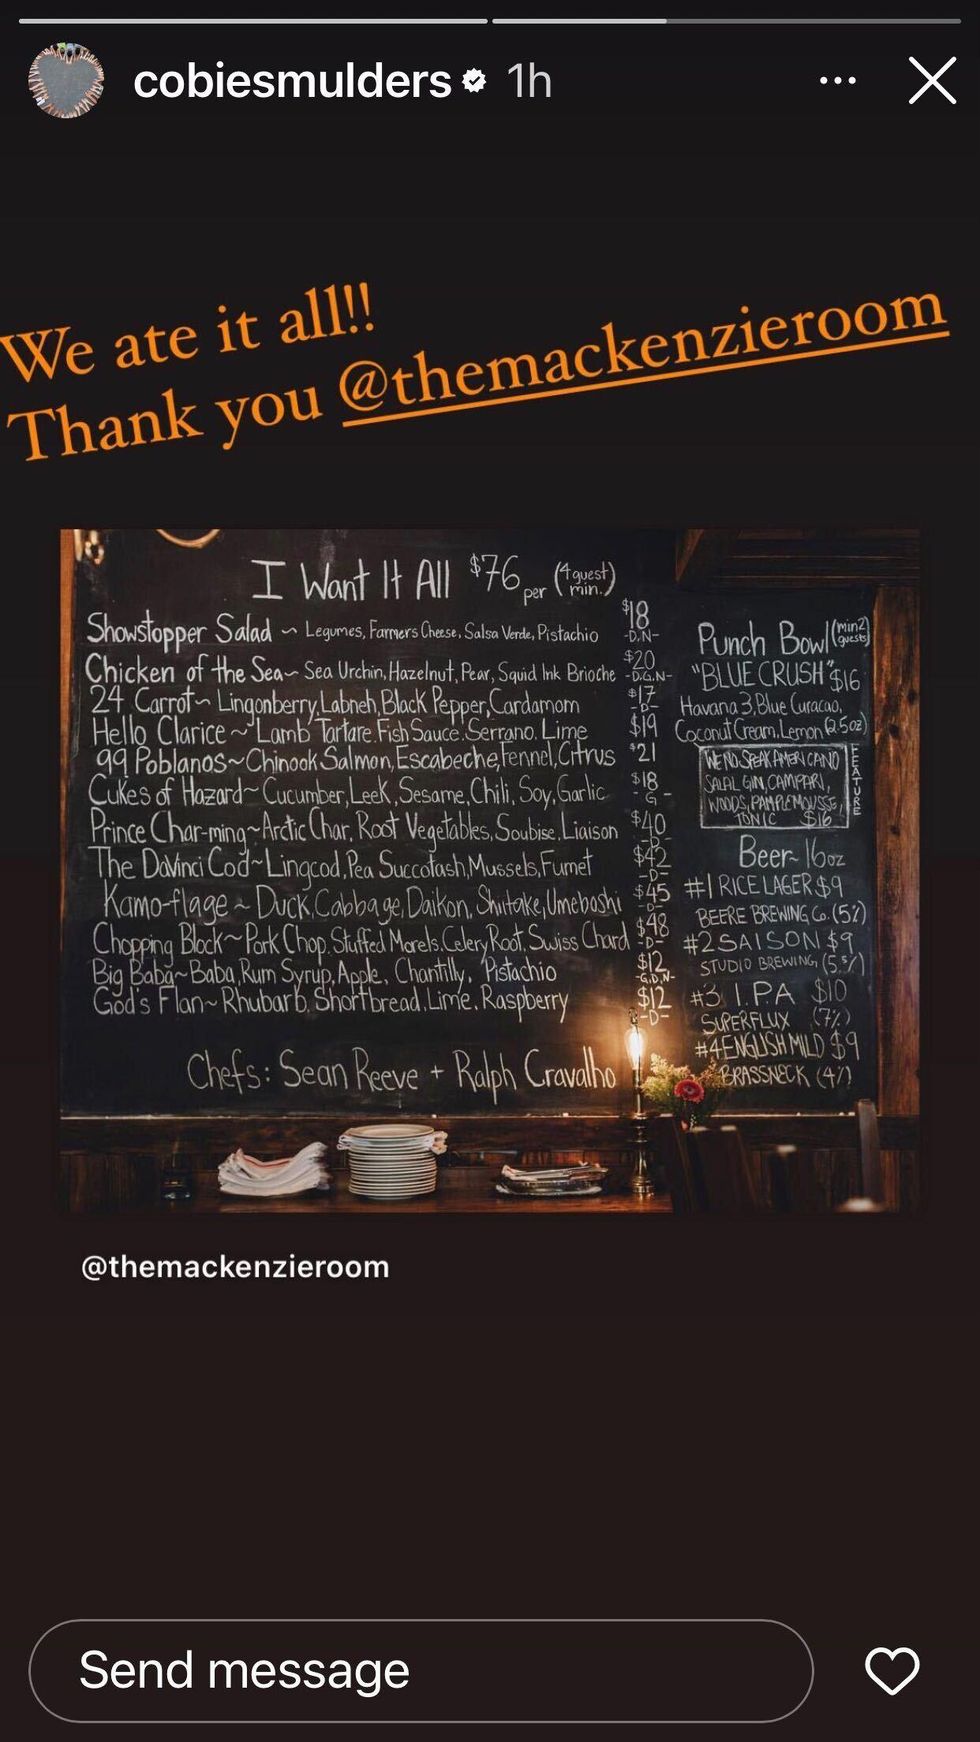 cobiesmulders 1h
We ate it all!!
Thank you @themackenzieroom
I Want It All $76 per (4 guest min.)
Showstopper Salad ~ Legumes, Farmers Cheese, Salsa Verde, Pistachio $18
-D,N-
Chicken of the Sea~ Sea Urchin, Hazelnut, Pear, Squid Ink Brioche $20
-D,G,N-
24 Carrot~ Lingonberry, Labneh, Black Pepper, Cardamom $17
-D-
Hello Clarice ~ Lamb Tartare. Fish Sauce. Serrano. Lime $19
99 Poblanos~Chinook Salmon, Escabeche, Fennel, Citrus $21
Cukes of Hazard~ Cucumber, Leek, Sesame, Chili, Soy, Garlic $18
-G-
Prince Char-ming~Arctic Char, Root Vegetables, Soubise, Liaison $40
-D-
The DaVinci Cod~Lingcod, Pea Succotash, Mussels, Fumet $42
-D-
Kamo-flage ~ Duck, Cabbage, Daikon, Shiitake, Umeboshi $45
-D-
Chopping Block~ Pork Chop, Stuffed Morels, Celery Root, Swiss Chard $48
-D-
Big Baba~Baba, Rum Syrup, Apple, Chantilly, Pistachio $12
-G,D,N-
God's Flan~ Rhubarb, Shortbread, Lime, Raspberry $12
-D-
Chefs: Sean Reeve + Ralph Cravalho
Punch Bowl (min 2 guests)
"BLUE CRUSH" $16
Havana 3, Blue Curacao,
Coconut Cream, Lemon (2.5oz)
WE NO SPEAK AMERICANO
SALAL GIN, CAMPARI,
WOODS, PAMPLEMOUSSE,
TONIC $16
FEATURE
Beer~ 16oz
#1 RICE LAGER $9
BEERE BREWING Co. (5%)
#2 SAISON $9
STUDIO BREWING (5.5%)
#3 I.P.A $10
SUPERFLUX (7%)
#4 ENGLISH MILD $9
BRASSNECK (4%)
@themackenzieroom
Send message